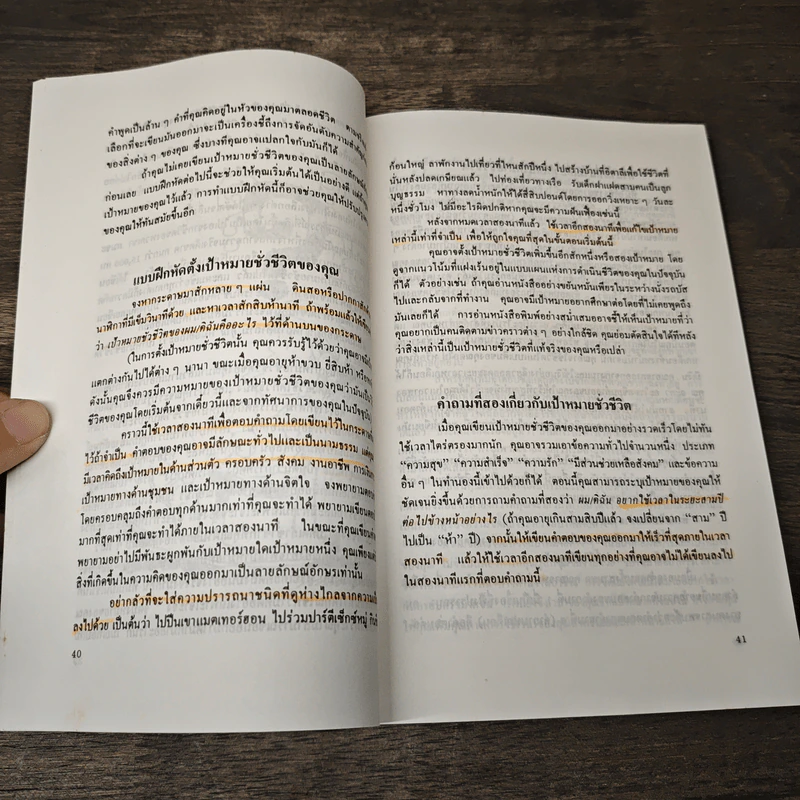 คำพูดเป็นล้าน ๆ คำที่คุณคิดอยู่ในหัวของคุณมาตลอดชีวิต
เลือกที่จะเขียนมันออกมาจะเป็นเครื่องชี้ถึงการจัดอันดับความสำคัญ
ของสิ่งต่าง ๆ ของคุณ ซึ่งบางทีคุณอาจแปลกใจกับมันก็ได้
ถ้าคุณไม่เคยเขียนเป้าหมายชั่วชีวิตของคุณเป็นลายลักษณ์
ก่อนเลย แบบฝึกหัดต่อไปนี้จะช่วยให้คุณเริ่มต้นได้เป็นอย่างดี
เป้าหมายของคุณไว้แล้ว การทำแบบฝึกหัดนี้ก็อาจช่วยคุณให้ปรับปรุง
ของคุณให้ทันสมัยขึ้นอีก
แบบฝึกหัดตั้งเป้าหมายชั่วชีวิตของคุณ
จงหากระดาษมาสักหลาย ๆ แผ่น ดินสอหรือปากกาสัก
นาฬิกาที่มีเข็มวินาทีด้วย และหาเวลาสักสิบห้านาที ถ้าพร้อมแล้วให้
ว่า เป้าหมายชั่วชีวิตของผม/ดิฉันคืออะไร ไว้ที่ด้านบนของกระดาษ
(ในการตั้งเป้าหมายชั่วชีวิตนั้น คุณควรรับรู้ไว้ด้วยว่าคุณอาจ
แตกต่างกันไปได้ต่าง ๆ นานา ขณะเมื่อคุณอายุห้าขวบ ยี่สิบห้า หรือ
ดังนั้นคุณจึงควรมีความหมายของเป้าหมายชั่วชีวิตของคุณว่ามันเป็น
ชีวิตของคุณโดยเริ่มต้นจากเดี๋ยวนี้และจากทัศนาการของคุณในปัจจุบัน
คราวนี้ใช้เวลาสองนาทีเพื่อตอบคำถามโดยเขียนไว้ในกระดาษ
ไว้ถ้าจำเป็น คำตอบของคุณอาจมีลักษณะทั่วไปและเป็นนามธรรม แต่คุณ
มีเวลาคิดถึงเป้าหมายในด้านส่วนตัว ครอบครัว สังคม งานอาชีพ การเงิน
เป้าหมายทางด้านชุมชน และเป้าหมายทางด้านจิตใจ จงพยายาม
โดยครอบคลุมถึงคำตอบทุกด้านมากเท่าที่คุณจะทำได้ พยายามเขียน
มากที่สุดเท่าที่คุณจะทำได้ภายในเวลาสองนาที ในขณะที่คุณเขียน
พยายามอย่าไปมีพันธะผูกพันกับเป้าหมายใดเป้าหมายหนึ่ง คุณเพียง
สิ่งที่เกิดขึ้นในความคิดของคุณออกมาเป็นลายลักษณ์อักษรเท่านั้น
อย่ากลัวที่จะใส่ความปรารถนาชนิดที่ดูห่างไกลจากความ
ลงไปด้วย เป็นต้นว่า ไปปีนเขาแมตเทอร์ฮอน ไปร่วมปาร์ตีเซ็กซ์หมู่
40
ก้อนใหญ่ ลาพักงานไปเที่ยวที่ไหนสักปีหนึ่ง ไปสร้างบ้านที่อิตาลีเพื่อใช้ชีวิตที่
นั่นหลังปลดเกษียณแล้ว ไปท่องเที่ยวทางเรือ รับเด็กฝาแฝดสามคนเป็นลูก
บุญธรรม หาทางลดน้ำหนักให้ได้สี่สิบปอนด์โดยการออกวิ่งเหยาะ ๆ วันละ
หนึ่งชั่วโมง ไม่มีอะไรผิดปกติหากคุณจะมีความฝันเฟื่องเช่นนี้
หลังจากหมดเวลาสองนาทีแล้ว ใช้เวลาอีกสองนาทีเพื่อแก้ไขเป้าหมาย
เหล่านี้เท่าที่จำเป็น เพื่อให้ถูกใจคุณที่สุดในขั้นตอนเริ่มต้นนี้
คุณอาจตั้งเป้าหมายชั่วชีวิตเพิ่มขึ้นอีกสักหนึ่งหรือสองเป้าหมาย โดย
ดูจากแนวโน้มที่แฝงเร้นอยู่ในแบบแผนแห่งการดำเนินชีวิตของคุณในปัจจุบัน
ก็ได้ ตัวอย่างเช่น ถ้าคุณอ่านหนังสืออย่างขยันหมั่นเพียรในระหว่างนั่งรถบัส
ไปและกลับจากที่ทำงาน คุณอาจมีเป้าหมายอยากศึกษาต่อโดยที่ไม่เคยพูดถึง
มันเลยก็ได้ การอ่านหนังสือพิมพ์อย่างสม่ำเสมออาจชี้ให้เห็นเป้าหมายที่ว่า
คุณอยากเป็นคนติดตามข่าวคราวต่าง ๆ อย่างใกล้ชิด คุณย่อมตัดสินใจได้ทีหลัง
ว่าสิ่งเหล่านี้เป็นเป้าหมายชั่วชีวิตที่แท้จริงของคุณหรือเปล่า
คำถามที่สองเกี่ยวกับเป้าหมายชั่วชีวิต
เมื่อคุณเขียนเป้าหมายชั่วชีวิตของคุณออกมาอย่างรวดเร็วโดยไม่ทัน
ใช้เวลาไตร่ตรองมากนัก คุณอาจรวมเอาข้อความทั่วไปจำนวนหนึ่ง ประเภท
“ความสุข” “ความสำเร็จ” “ความรัก” “มีส่วนช่วยเหลือสังคม” และข้อความ
อื่น ๆ ในทำนองนี้เข้าไปด้วยก็ได้ ตอนนี้คุณสามารถระบุเป้าหมายของคุณให้
ชัดเจนยิ่งขึ้นด้วยการถามคำถามที่สองว่า ผม/ดิฉัน อยากใช้เวลาในระยะสามปี
ต่อไปข้างหน้าอย่างไร (ถ้าคุณอายุเกินสามสิบปีแล้ว จงเปลี่ยนจาก “สาม” ปี
ไปเป็น “ห้า” ปี) จากนั้นให้เขียนคำตอบของคุณออกมาให้เร็วที่สุดภายในเวลา
สองนาที แล้วให้ใช้เวลาอีกสองนาทีเขียนทุกอย่างที่คุณอาจไม่ได้เขียนลงไป
ในสองนาทีแรกที่ตอบคำถามนี้
41